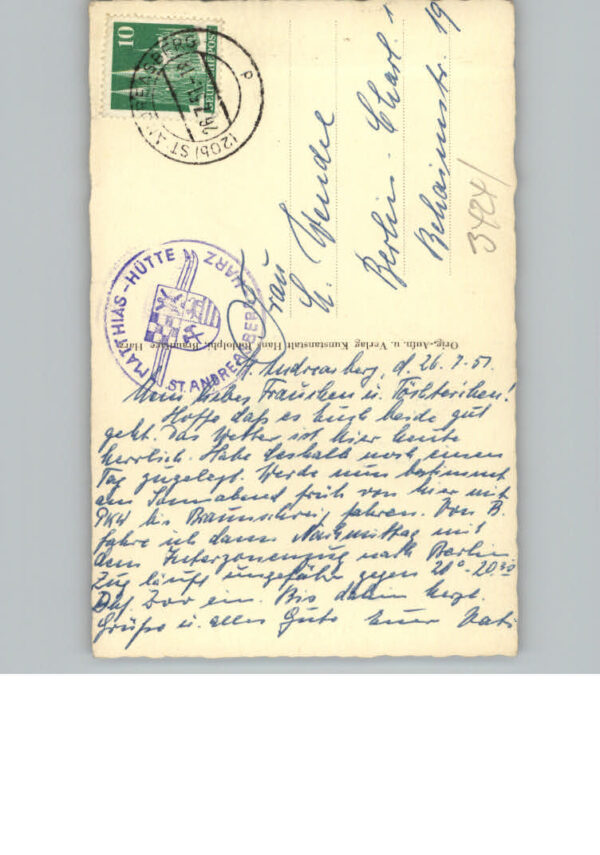 10
DEUTSCHE POST
(20b) ST. ANDREASBERG
26.7.51
MATTHIAS-HÜTTE
ST. ANDREASBERG HARZ
Frau
H. Wendel
Berlin-Charl. 1
Behaimstr. 19
3424/
Orig.-Aufn. u. Verlag Kunstanstalt Hans Rudolphi, Braunlage Harz
St. Andreasberg, d. 26.7.51.
Mein liebes Frauchen u. Töchterchen!
Hoffe daß es Euch beide gut
geht. Das Wetter ist hier heute
herrlich. Habe deshalb noch einen
Tag zugelegt. Werde nun bestimmt
am Sonnabend früh von hier mit
PKW bis Braunschweig fahren. Von B.
fahre ich dann Nachmittag mit
dem Interzonenzug nach Berlin
Zug läuft ungefähr gegen 20°-20.30
Bhf. Zoo ein. Bis dahin herzl.
Grüße u. alles Gute Euer Vati